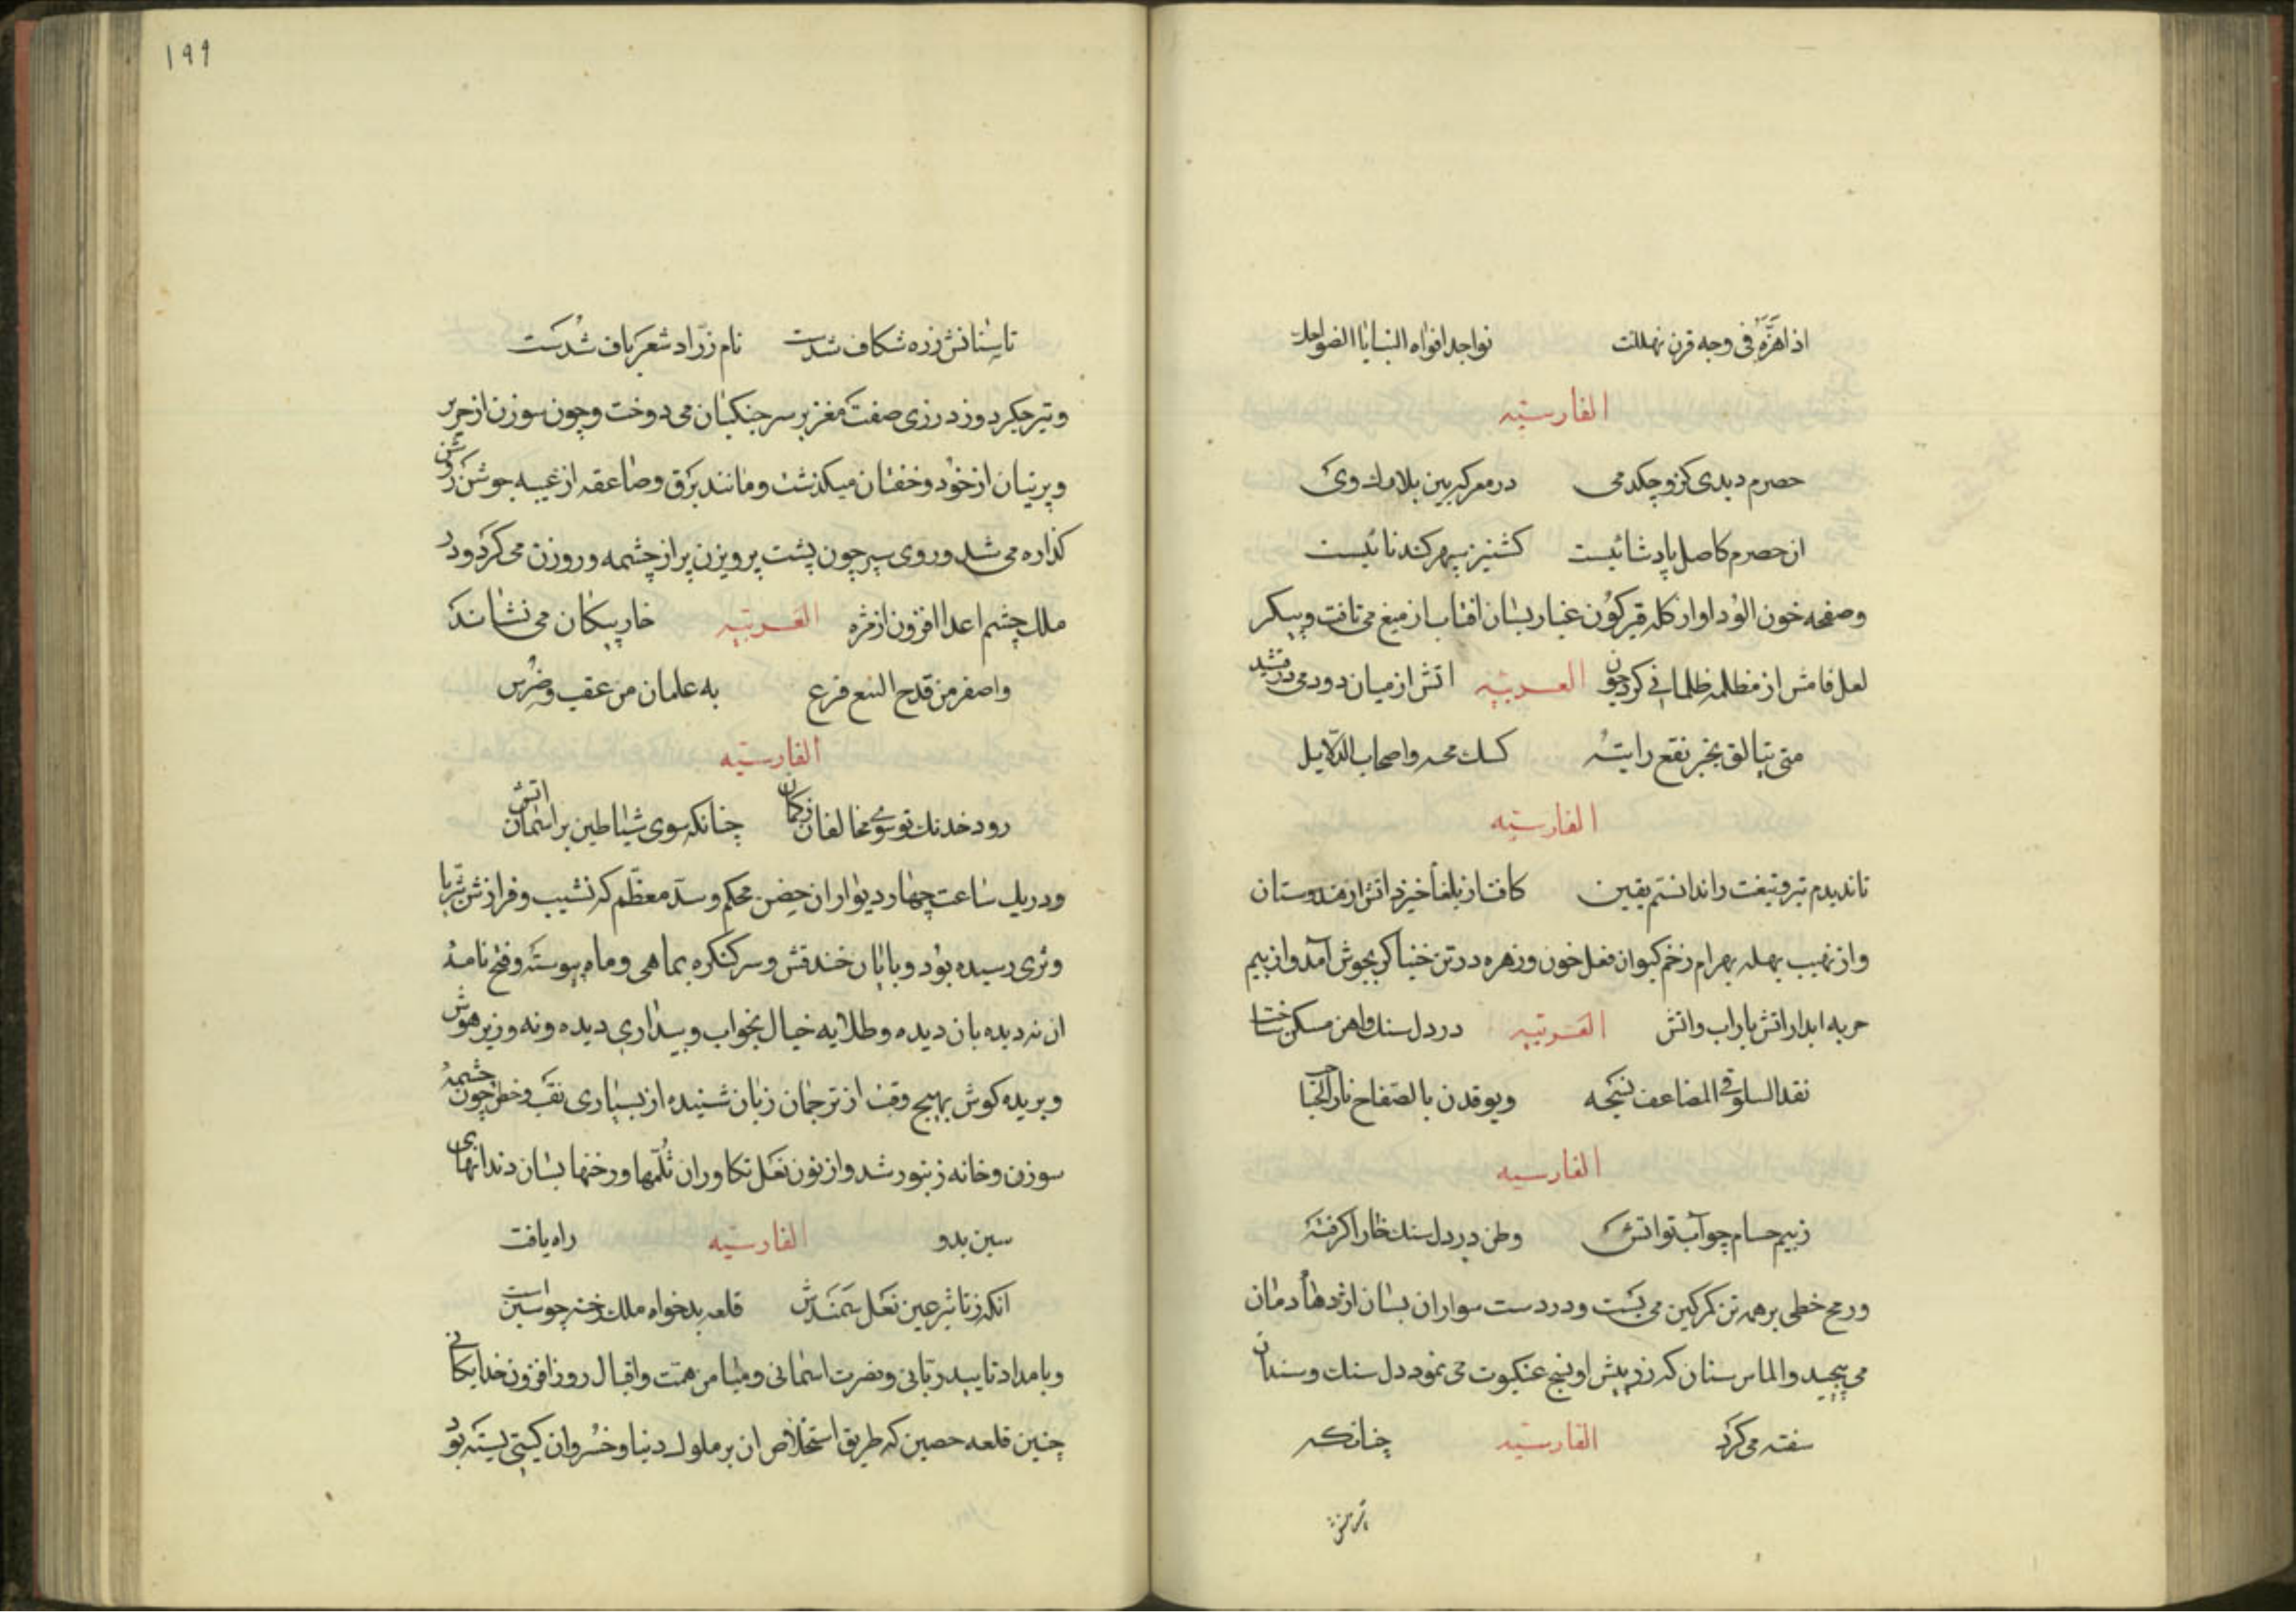 اذا هزّه فی وجه قرن تهللت نواجد افواه المنایا الضواحك
الفارسیّه
حصرم دیدی کزو چکد می در معرکه بین بلارك وی
ان حصرم کاصل پادشائیست کشنیز سپهر کند نائیست
وصفحه خون الوُد او از کله قیرکوُن غبار بسان افتاب از میغ می تافت و پیکر
لعل فامش از مظلمه ظلمانی کرد چون العربیّه اتش از میان دود می درفشید
متی یتالق بخبر نقع رایته کسك محمد واصحاب الدّلایل
الفارسیّه
تا ندیدم تیر و تیغت را ندانستم یقین کافتاب از بلغار خیزد اتش از هندوستان
واز نهیب بهله بهرام زخم کیوان فعل خون و زهره در تن خنیاکر بجوش آمد و از بیم
حربه ابدار اتش بار اب واتش العَربیّه در دل سنك واهن مسکن ساخت
تقد السلوقی المضاعف نسجه ویوقدن بالصّفاح نار الحُباحب
الفارسیه
ز بیم حسام چو آب تو اتش وطن در دل سنك خارا کرفته
ورمح خطی بر همه تن کمر کین می بست و در دست سواران بسان اژدهاء دمان
می پیچید والماس سنان که زره پیش او نسج عنکبوت می نمود دل سنك وسندان
سفته می کرد الفارسیّه چنانکه
۱۹۹
تا سنانش زره شکاف شدست نام زرّاد شعرباف شدست
وتیر جکر دوز درزی صفت مغفر بر سر جنکیان می دوخت و چون سوزن از حریر
و پرنیان از خوُد و خفتان میکذشت و مانند برق و صاعقه از غیبه جوشن روشن
کذاره می شد و روی سپر چون پشت پرویزن پر از چشمه و روزن می کرد و در
ملك چشم اعدا افزون از مژه العَربیّه خار پیکان می نشاند
واصفر من قداح النبع فرع به علمان من عقب وضرس
الفارسیّه
رود خدنك تو سوی مخالفان ز کمان چنانکه سوی شیاطین بر اسمان اتش
و در یك ساعت چهار دیوار ان حِصن محکم و سدّ معظّم که نشیب و فرازش بثریا
وثری رسیده بوُد و پایان خندقش و سر کنکره بماهی و ماه پیوسته و فتح نامهٔ
ان نه دیده بان دیده و طلایه خیال بخواب و بیداری دیده و نه وزیر هوش
و برید کوش بهیچ وقت از ترجمان زبان شنیده از بسیاری نقب و خطر چون چشمهٔ
سوزن و خانه زنبور شد و از نون نعل تکاوران ثُلمها و رخنها بسان دندانهای
سین بدو الفارسیّه راه یافت
انکه ز تاثیر عین نعل سمندش قلعه بدخواه ملك رخنه چو سین است
وبامداد تایید ربّانی و نصرت اسمانی و میامن همت و اقبال روز افزون خدایکانی
چنین قلعه حصین که طریق استخلاص ان بر ملوك دنیا و خسروان کیتی بسته بود